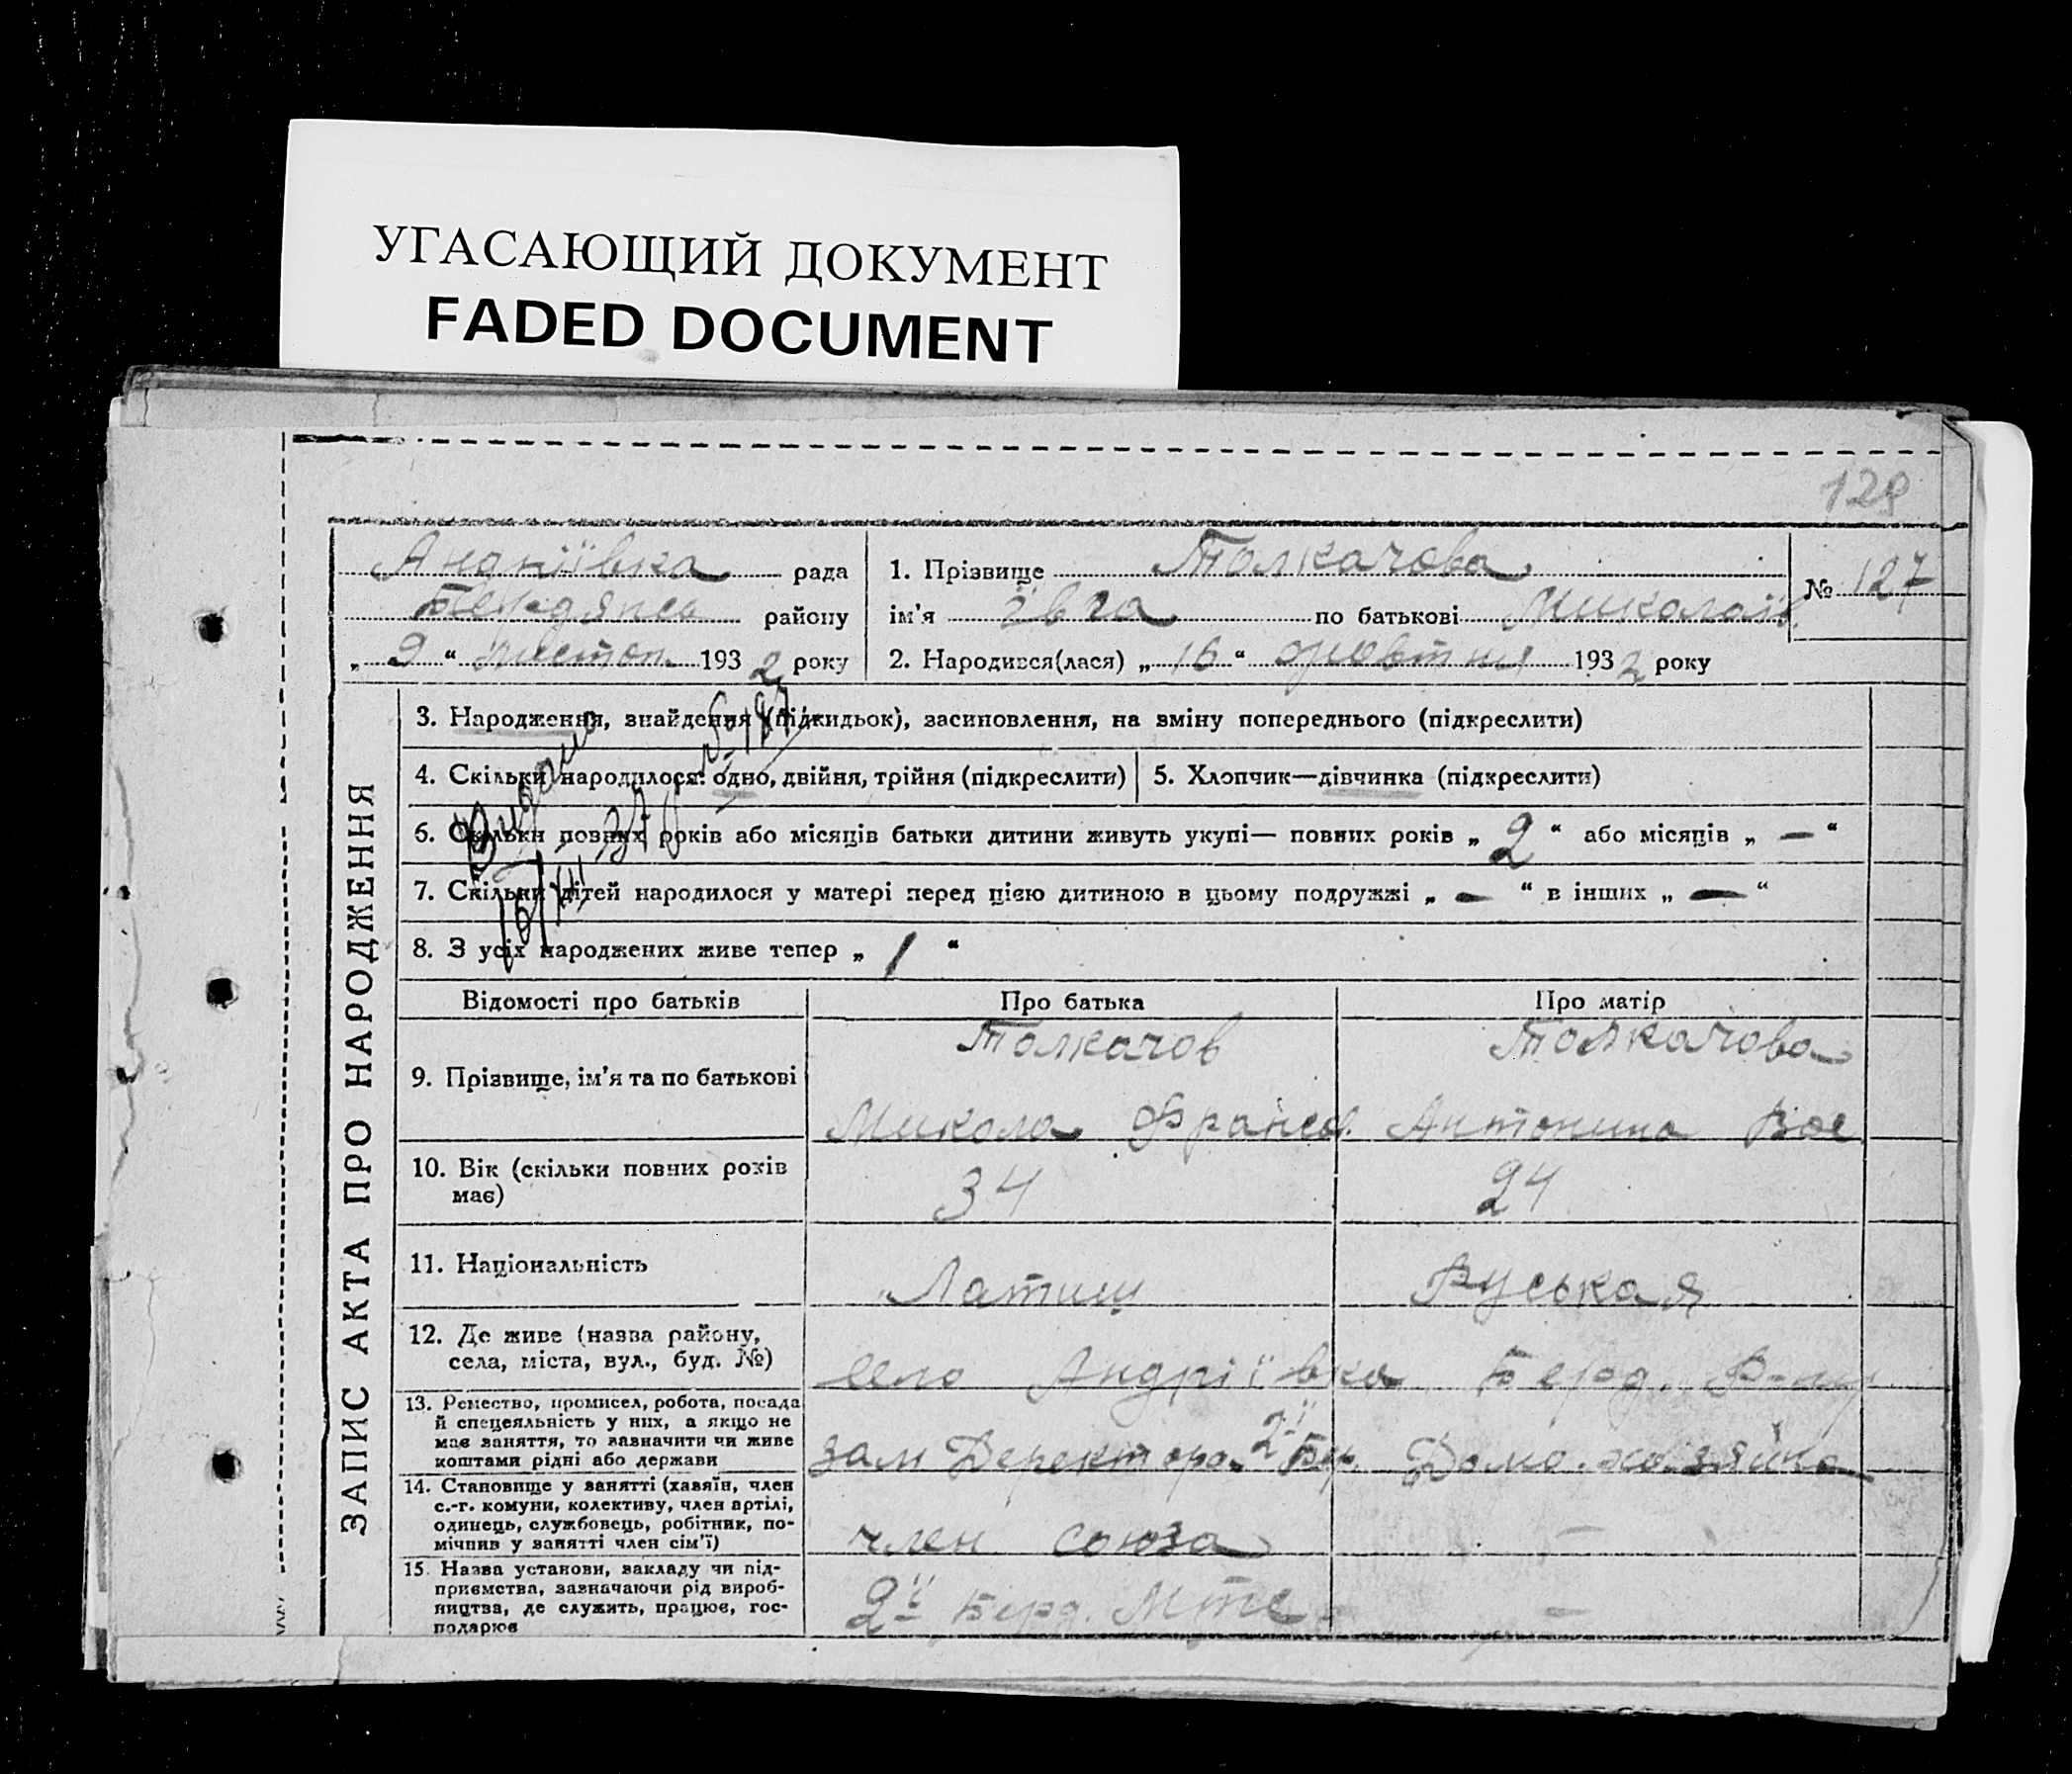 УГАСАЮЩИЙ ДОКУМЕНТ
FADED DOCUMENT
129
Андріївка рада
Бердянсь району
„ 9 “ листоп. 1932 року
1. Прізвище Толкачова
ім’я Івга по батькові Миколаїв.
2. Народився(лася) „ 16 “ жовтня 1932 року
№ 127
ЗАПИС АКТА ПРО НАРОДЖЕННЯ
3. Народження, знайдення (підкидьок), засиновлення, на зміну попереднього (підкреслити)
4. Скільки народилося: одно, двійня, трійня (підкреслити)
5. Хлопчик—дівчинка (підкреслити)
6. Скільки повних років або місяців батьки дитини живуть укупі— повних років „ 2 “ або місяців „ — “
7. Скільки дітей народилося у матері перед цією дитиною в цьому подружжі „ — “ в інших „ — “
8. З усіх народжених живе тепер „ 1 “
Видано
Відомості про батьків
Про батька
Про матір
9. Прізвище, ім’я та по батькові
Толкачов
Микола
Толкачова
Антонина Вас.
10. Вік (скільки повних років
має)
34
24
11. Національність
Латиш
Руськая
12. Де живе (назва району,
села, міста, вул., буд. №)
село Андріївка Берд. Р-ну
13. Ремество, промисел, робота, посада
й спецеяльність у них, а якщо не
має заняття, то зазначити чи живе
коштами рідні або держави
зам Деректора 2ї Бер.
Домо.хозяйка
14. Становище у занятті (хазяїн, член
с.-г. комуни, колективу, член артілі,
одинець, службовець, робітник, по-
мічник у занятті член сім’ї)
член союза
—
15. Назва установи, закладу чи під-
приємства, зазначаючи рід вироб-
ництва, де служить, працює, гос-
подарює
2ї Берд. Мтс
—